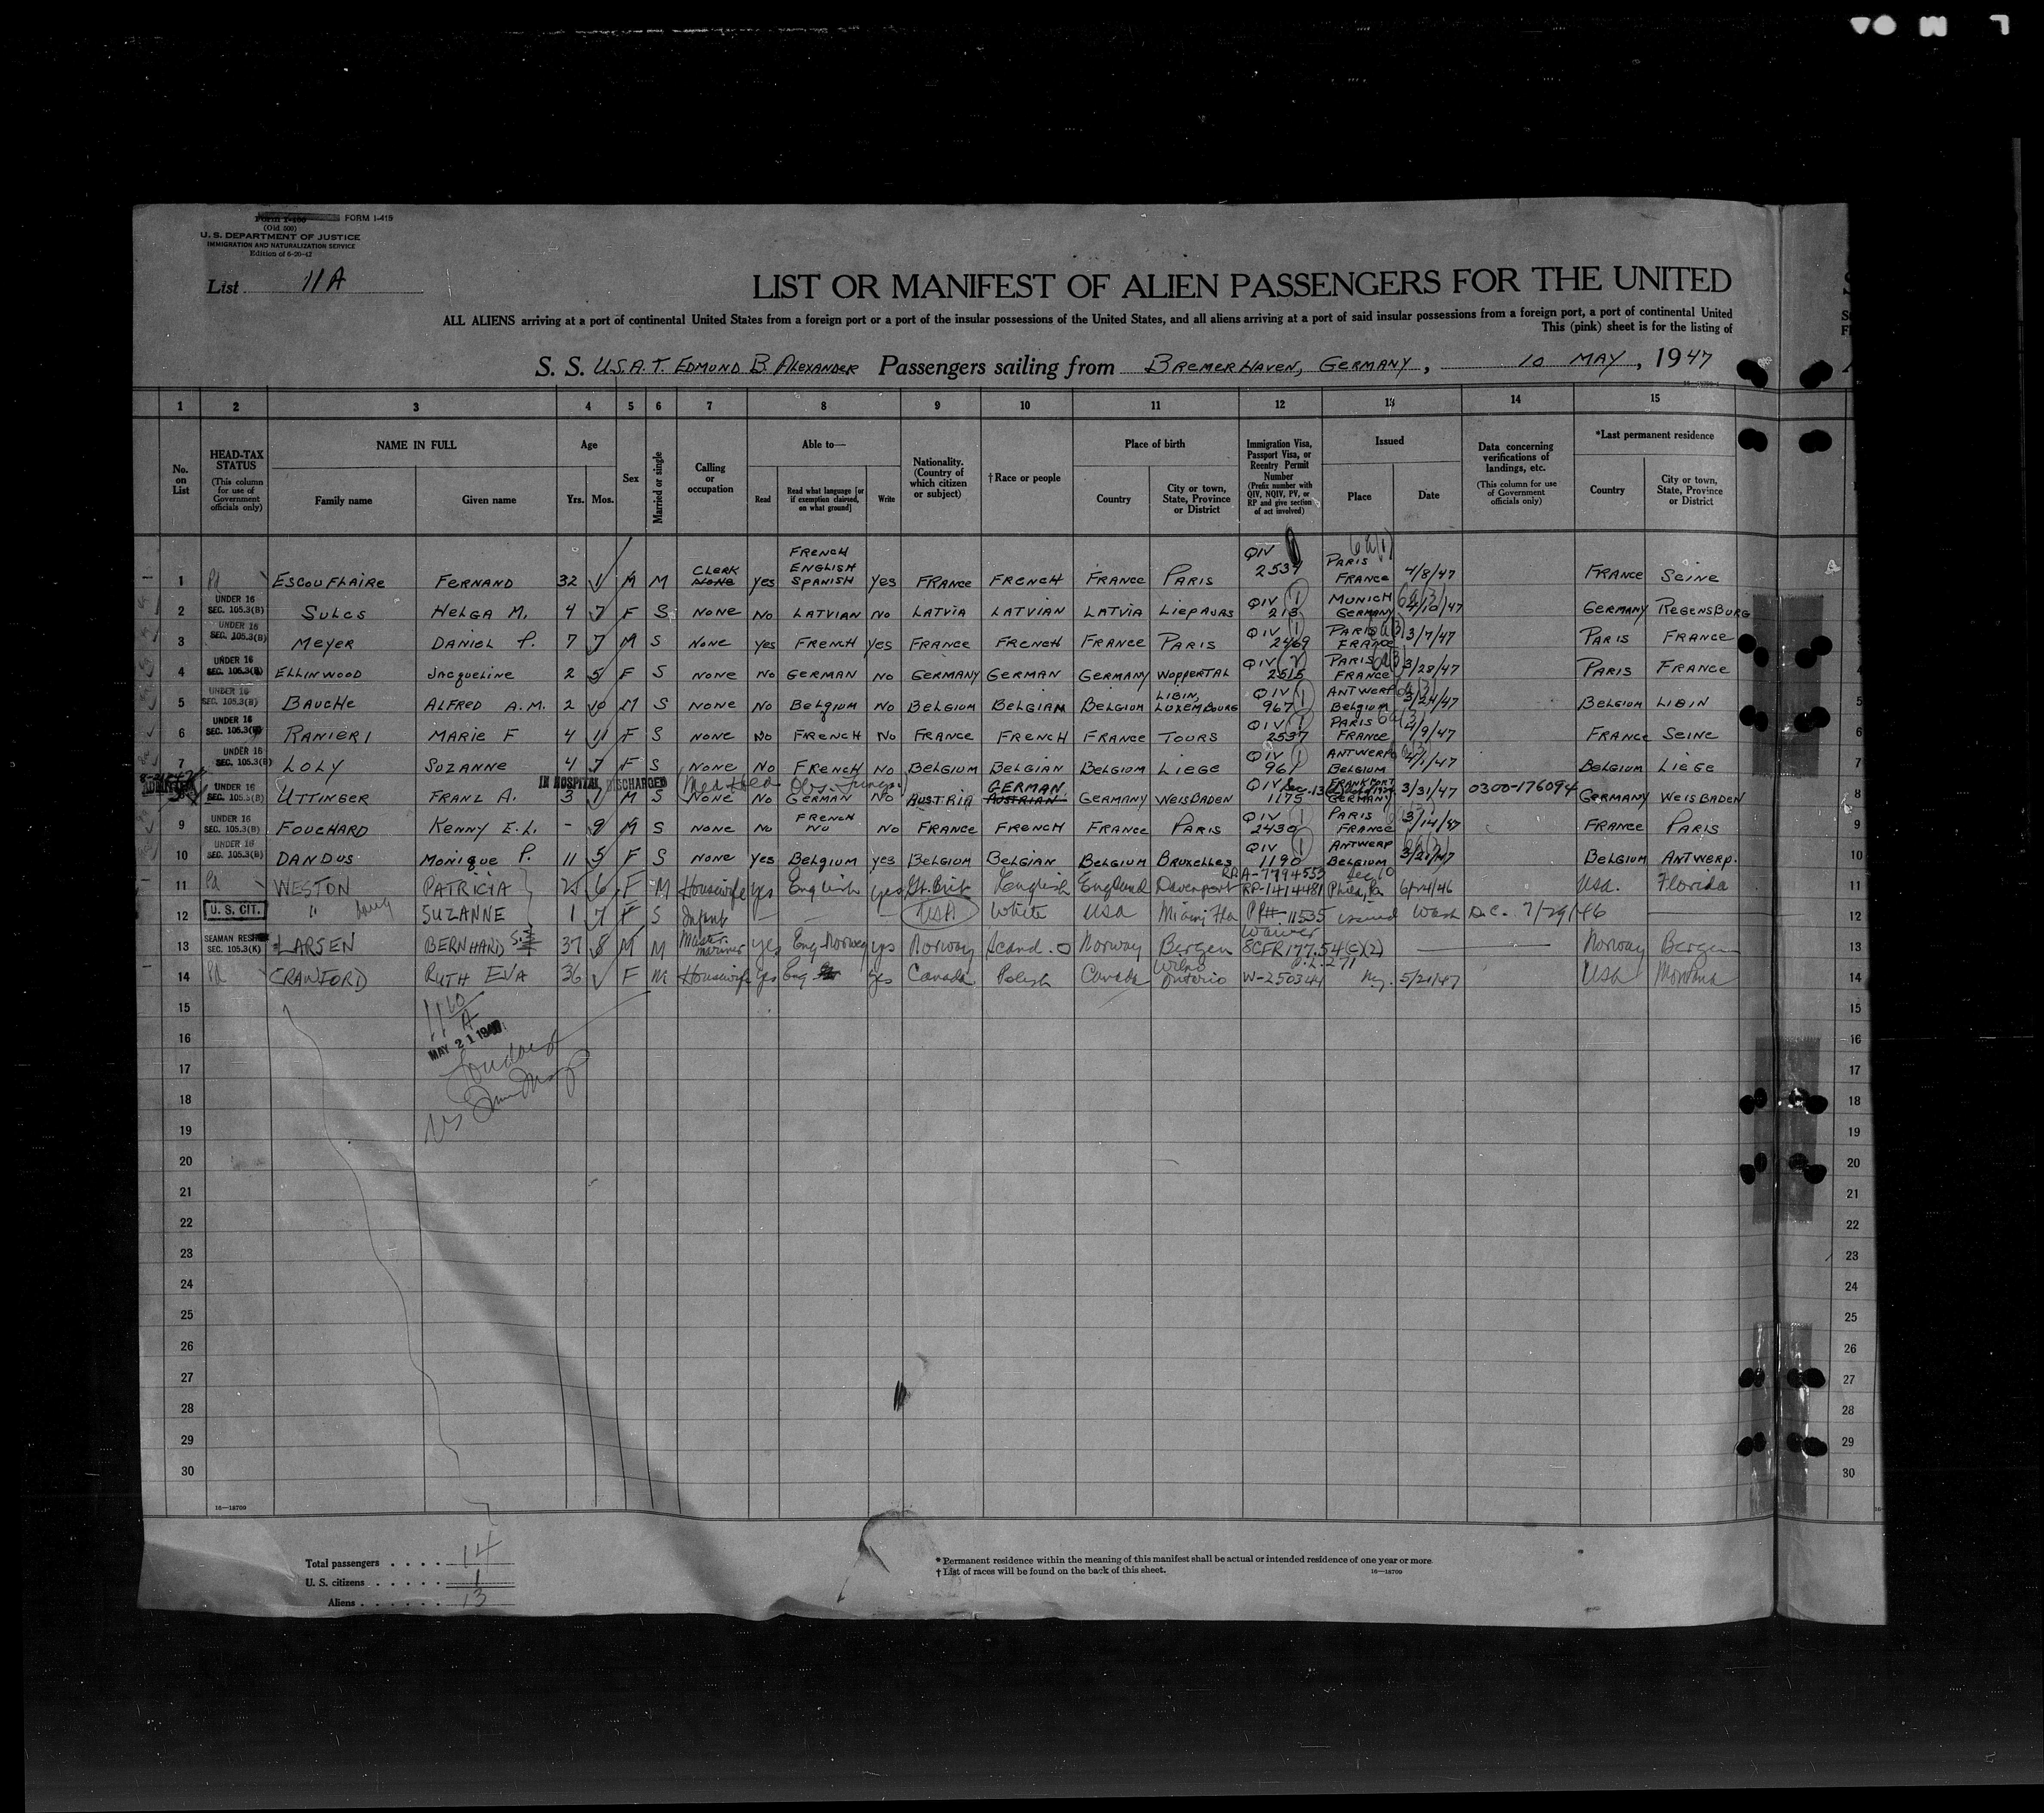 Form I-466 FORM I-415
(Old 500)
U. S. DEPARTMENT OF JUSTICE
IMMIGRATION AND NATURALIZATION SERVICE
Edition of 6-20-42
List 11A
LIST OR MANIFEST OF ALIEN PASSENGERS FOR THE UNITED
ALL ALIENS arriving at a port of continental United States from a foreign port or a port of the insular possessions of the United States, and all aliens arriving at a port of said insular possessions from a foreign port, a port of continental United
This (pink) sheet is for the listing of
S. S. U.S.A.T. EDMUND B. ALEXANDER Passengers sailing from BREMERHAVEN, GERMANY, 10 MAY, 1947
1 2 3 4 5 6 7 8 9 10 11 12 13 14 15
No. on List
HEAD-TAX STATUS (This column for use of Government officials only)
NAME IN FULL
Family name Given name
Age
Yrs. Mos.
Sex
Married or single
Calling or occupation
Able to—
Read Read what language [or if exemption claimed, on what ground] Write
Nationality. (Country of which citizen or subject)
†Race or people
Place of birth
Country City or town, State, Province or District
Immigration Visa, Passport Visa, or Reentry Permit Number (Prefix number with QIV, NQIV, PV, or RP and give section of act involved)
Issued
Place Date
Data concerning verifications of landings, etc. (This column for use of Government officials only)
*Last permanent residence
Country City or town, State, Province or District
1 Pd ESCOUFLAIRE FERNAND 32 1 M M CLERK NONE yes FRENCH ENGLISH SPANISH yes FRANCE FRENCH FRANCE PARIS QIV 2537 PARIS FRANCE 6a(1) 4/8/47 FRANCE SEINE
2 UNDER 16 SEC. 105.3(B) SULCS HELGA M. 4 7 F S NONE NO LATVIAN NO LATVIA LATVIAN LATVIA LIEPAJAS QIV 213 MUNICH GERMANY 6a(3) 4/10/47 GERMANY REGENSBURG
3 UNDER 16 SEC. 105.3(B) MEYER DANIEL P. 7 7 M S NONE yes FRENCH yes FRANCE FRENCH FRANCE PARIS QIV 2469 PARIS FRANCE 3/7/47 PARIS FRANCE
4 UNDER 16 SEC. 105.3(B) ELLINWOOD JACQUELINE 2 5 F S NONE NO GERMAN NO GERMANY GERMAN GERMANY WOPPERTAL QIV 2515 PARIS FRANCE 3/28/47 PARIS FRANCE
5 UNDER 16 SEC. 105.3(B) BAUCHE ALFRED A.M. 2 10 M S NONE NO BELGIUM NO BELGIUM BELGIAN BELGIUM LIBIN, LUXEMBOURG QIV 967 ANTWERP BELGIUM 3/24/47 BELGIUM LIBIN
6 UNDER 16 SEC. 105.3(B) RANIERI MARIE F 4 11 F S NONE NO FRENCH NO FRANCE FRENCH FRANCE TOURS QIV 2537 PARIS FRANCE 6a(3) 1/9/47 FRANCE SEINE
7 UNDER 16 SEC. 105.3(B) LOLY SUZANNE 4 7 F S NONE NO FRENCH NO BELGIUM BELGIAN BELGIUM LIEGE QIV 961 ANTWERP BELGIUM 4/1/47 BELGIUM LIEGE
ADMITTED IN HOSPITAL DISCHARGED
8 UNDER 16 SEC. 105.3(B) UTTINGER FRANZ A. 3 1 M S NONE NO GERMAN NO AUSTRIA GERMAN AUSTRIAN GERMANY WEISBADEN QIV 1175 FRANKFORT GERMANY 3/31/47 0300-176094 GERMANY WEISBADEN
9 UNDER 16 SEC. 105.3(B) FOUCHARD KENNY E.L. - 9 M S NONE NO FRENCH NO NO FRANCE FRENCH FRANCE PARIS QIV 2430 PARIS FRANCE 3/14/47 FRANCE PARIS
10 UNDER 16 SEC. 105.3(B) DANDUS MONIQUE P. 11 5 F S NONE yes BELGIUM yes BELGIUM BELGIAN BELGIUM BRUXELLES QIV 1190 ANTWERP BELGIUM 3/21/47 BELGIUM ANTWERP.
11 Pd WESTON PATRICIA 25 6 F M Housewife yes English yes Gt. Brit English England Davenport A-7794553 Sec 10 RP-1414481 Phila, Pa 6/24/46 USA. Florida
12 U. S. CIT. " daug SUZANNE 1 7 F S Infant — — — USA White USA Miami Fla PP# 11535 issued Wash D.C. 7/29/46
13 SEAMAN RESH SEC. 105.3(K) LARSEN BERNHARD S. 37 8 M M Master mariner yes Eng. Norweg yes Norway Scand. Norway Bergen Waiver 8CFR177.54(c)(2) Norway Bergen
14 Pd CRAWFORD RUTH EVA 36 F M Housewife yes Eng yes Canada Polish Canada Wilno Ontario P.L. 271 W-250341 Ny. 5/21/47 USA Montana
15
16
17
18
19
20
21
22
23
24
25
26
27
28
29
30
11 10 A
MAY 21 1947
16—18709
Total passengers 14
U. S. citizens 1
Aliens 13
* Permanent residence within the meaning of this manifest shall be actual or intended residence of one year or more
† List of races will be found on the back of this sheet. 16—18709